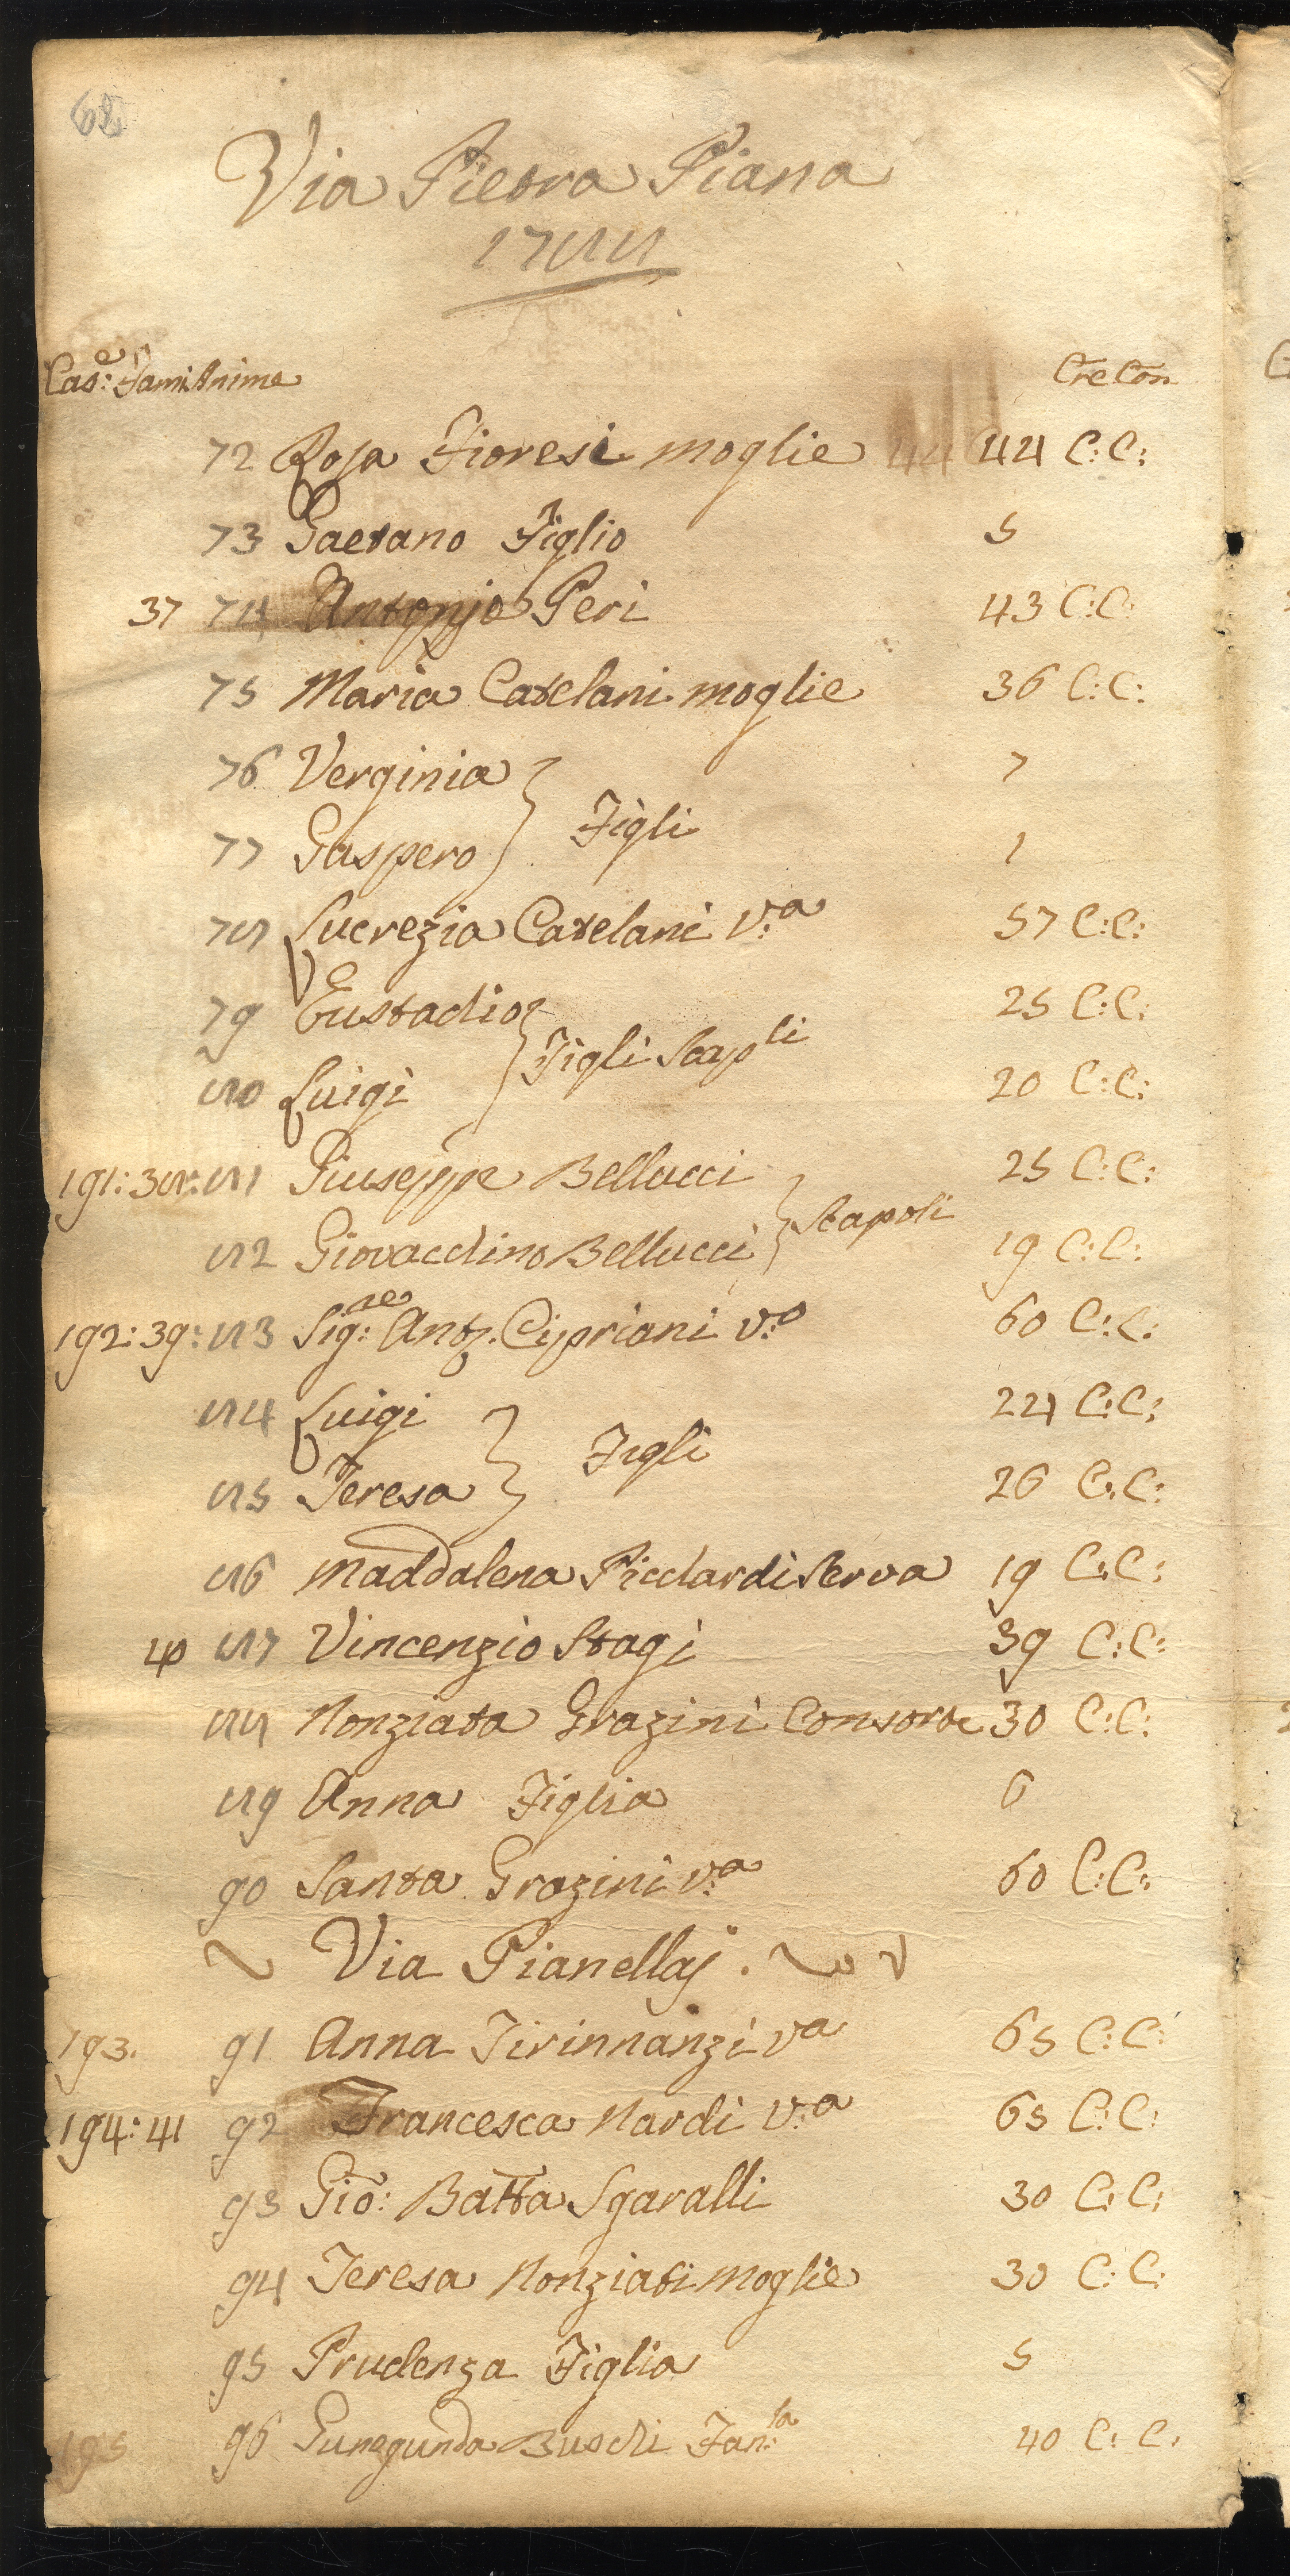 Via Pietra Piana
1788
Cas:e Fam: Anime Cre Con
72 Rosa Fioresi moglie 44 44 C: C:
73 Gaetano Figlio 5
37 74 Antonio Peri 43 C: C:
75 Maria Catelani moglie 36 C: C:
76 Verginia 7
Figli
77 Gaspero 1
78 Lucrezia Catelani V:a 57 C: C:
79 Eustachio 25 C: C:
Figli Scapli
80 Luigi 20 C: C:
191: 38: 81 Giuseppe Bellucci 25 C: C:
Scapoli
82 Giovacchino Bellucci 19 C: C:
192: 39: 83 Sig:re Anto. Cipriani v:o 60 C: C:
84 Luigi 24 C: C:
Figli
85 Teresa 26 C: C:
86 Maddalena Picchardi Serva 19 C: C:
40 87 Vincenzio Stagi 39 C: C:
88 Nonziata Grazini Consorte 30 C: C:
89 Anna Figlia 6
90 Santa Grazini v:a 60 C: C:
Via Pianellaj.
193. 91 Anna Tirinnanzi va 65 C: C:
194: 41 92 Francesca Nardi V:a 65 C: C:
93 Gio: Batta Sgaralli 30 C: C:
94 Teresa Nonziati moglie 30 C: C:
95 Prudenza Figlia 5
195 96 Gunegunda Buschi Fan:la 40 C: C: